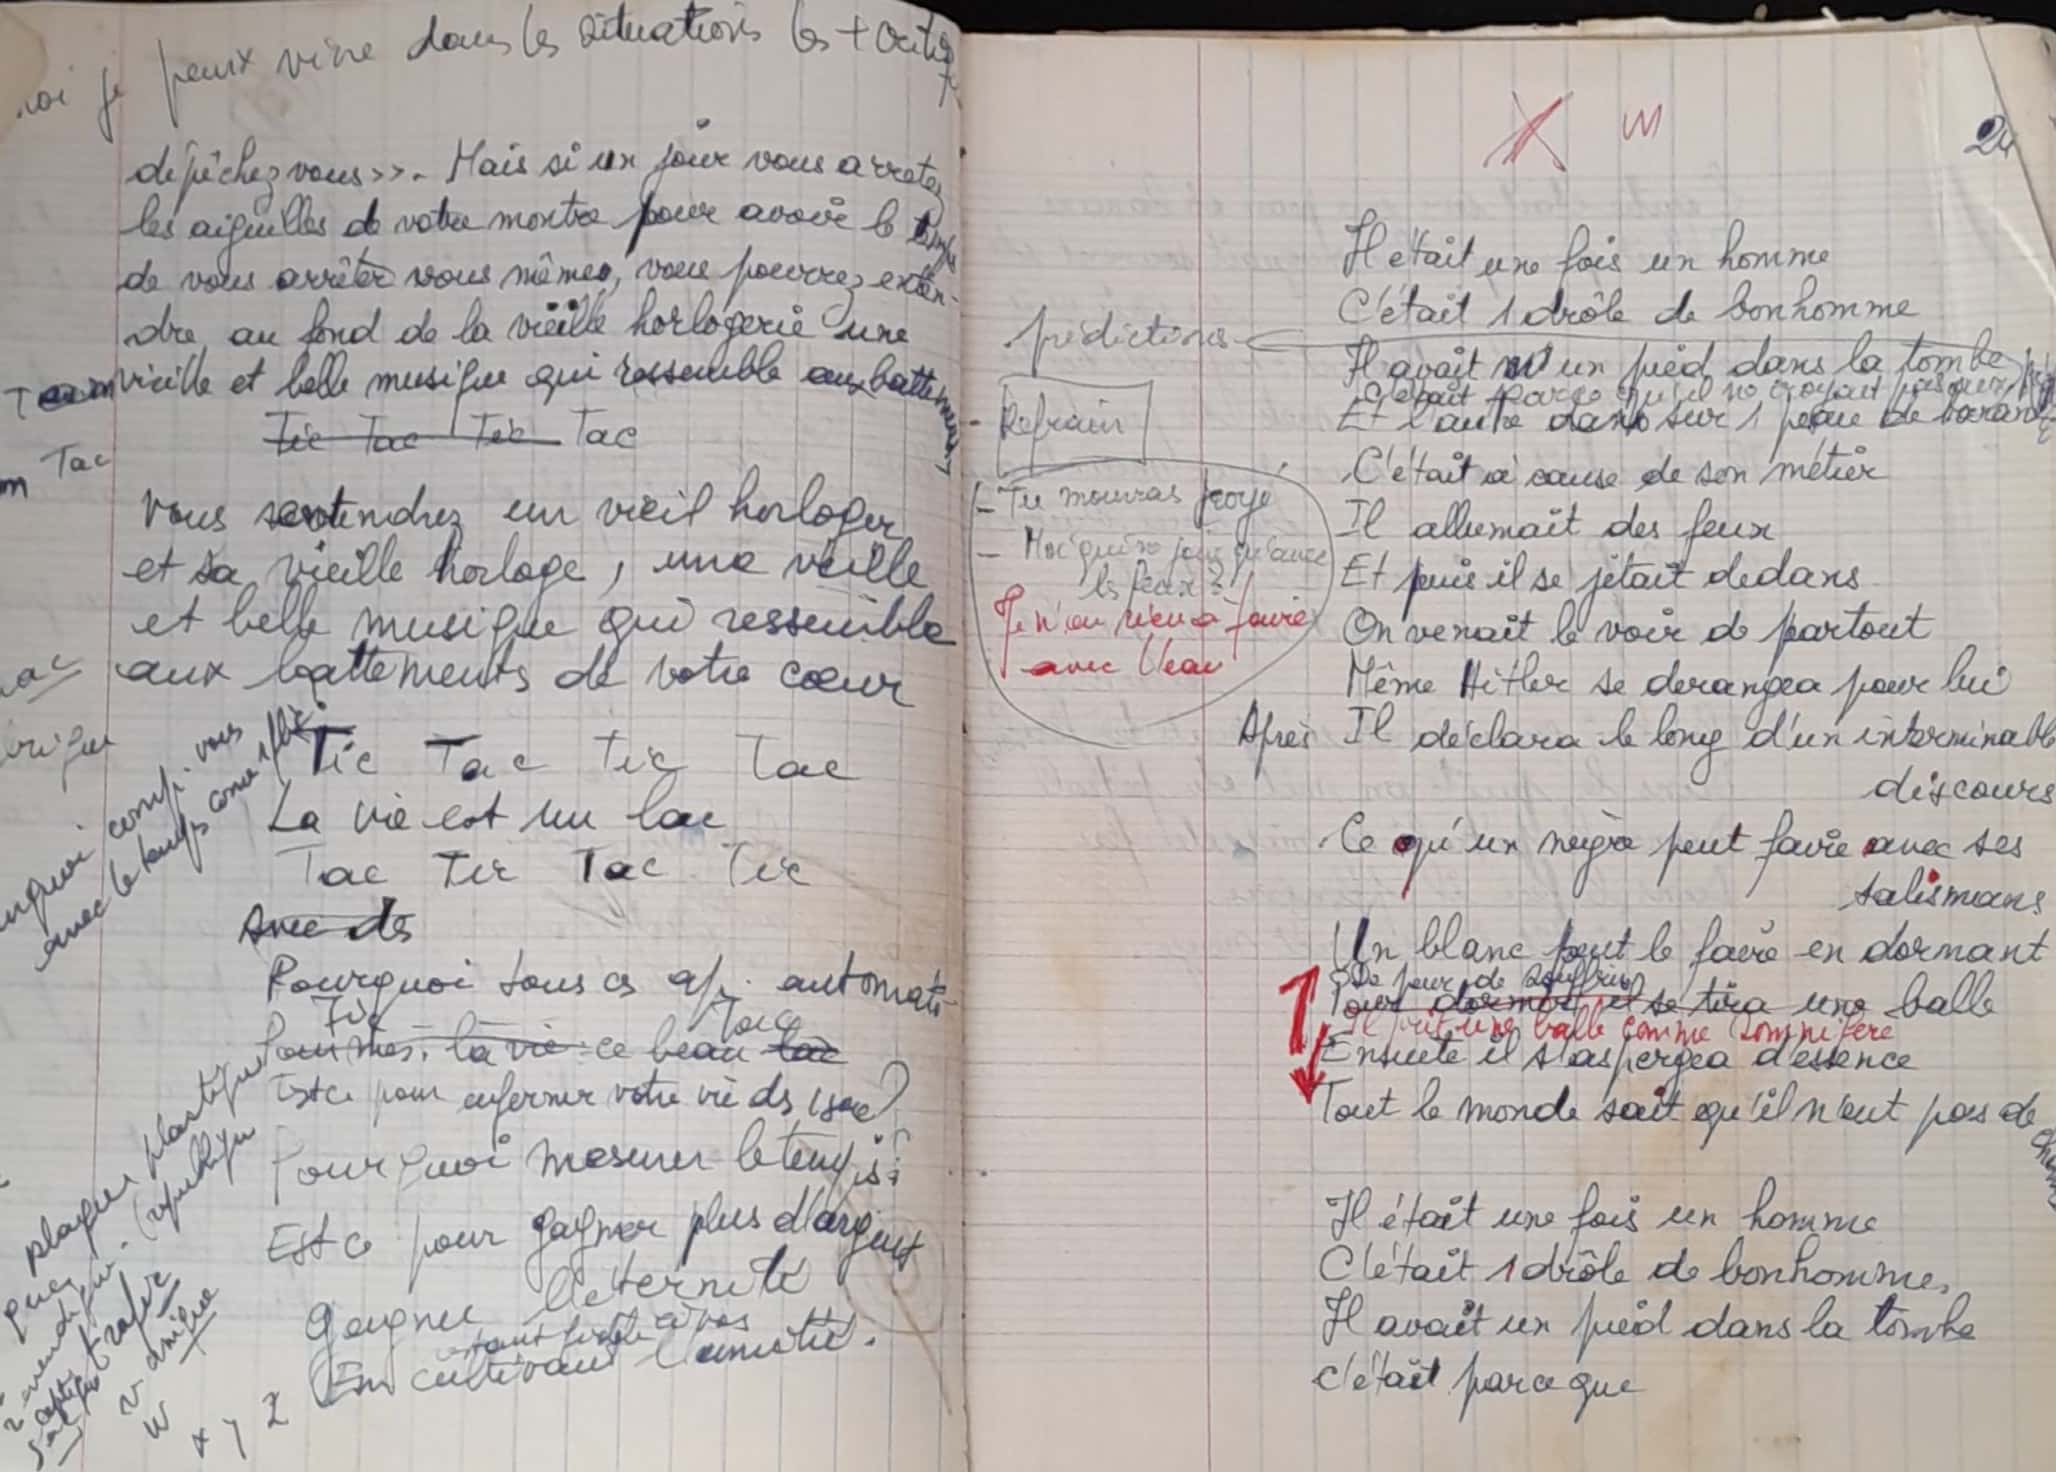 je peux vivre dans les situations les + critiq
dépêchez vous >>. Mais si un jour vous arretez
les aiguilles de votre montre pour avoir le temps
de vous arrêter vous mêmes, vous pourrez enten-
dre au fond de la vieille horlogerie une
vieille et belle musique qui ressemble aux battements
Tic Tac Tic Tac
Tac
Vous entendrez un vieil horloger
et sa vieille horloge, une vieille
et belle musique qui ressemble
aux battements de votre cœur
Tic Tac Tic Tac
La vie est un lac
Tac Tic Tac Tic
Avec des
Pourquoi tous ces ap. automati-
Tic Tac
la vie ce beau lac
Est ce pour enfermer votre vie ds 1 sac?
Pourquoi mesurer le temps?
Est ce pour gagner plus d'argent
Gagner l'éternité
En cultivant l'amitié.
avec le temps comme
plaques plastique
v
w
x y z
24
Il était une fois un homme
C'était 1 drôle de bonhomme
prédictions
Il avait un pied dans la tombe
C'était parce qu'il ne croyait pas aux
Et l'autre dans sur 1 peau de banane
Refrain
C'était à cause de son métier
- Tu mourras
Il allumait des feux
- Moi qui ne joue qu'avec
les feux?
Et puis il se jetait dedans
Je n'ai rien à faire
avec l'eau
On venait le voir de partout
Même Hitler se derangea pour lui
Après Il déclara le long d'un interminable
discours
Ce qu'un nègre peut faire avec ses
talismans
Un blanc peut le faire en dormant
De peur de souffrir
Pour dormir il se tira une balle
Il prit une balle comme somnifère
Ensuite il s'aspergea d'essence
Tout le monde sait qu'il n'eut pas de
Il était une fois un homme
C'était 1 drôle de bonhomme,
Il avait un pied dans la tombe
c'était parce que